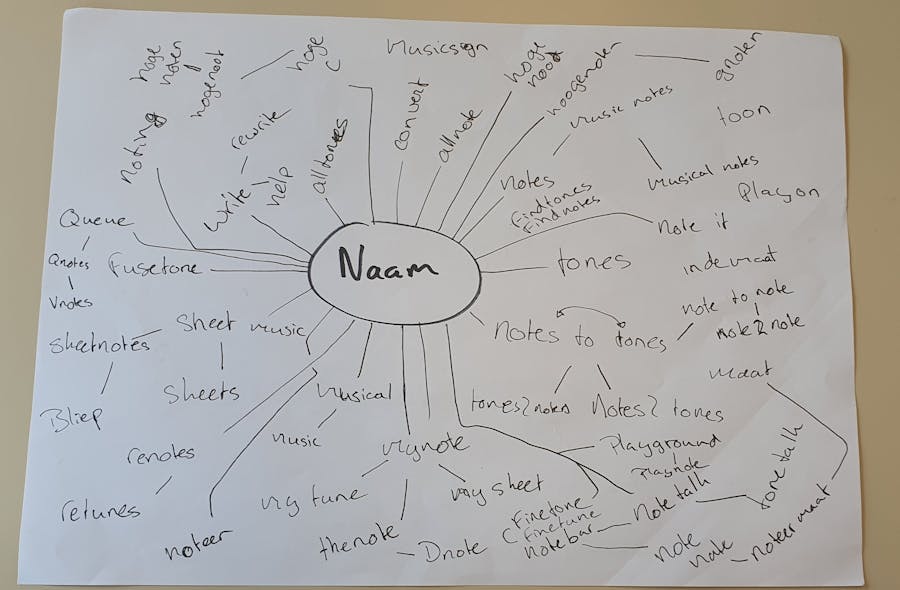 hoge
noten
hogenoot
hoge
C
Musicsgn
hoge
noot
hoogenoten
gnoten
noting
rewrite
write
help
alltones
convert
allnote
Music notes
toon
notes
Findtones
Findnotes
Musical notes
Playon
Note it
Queue
Qnotes
Vnotes
Fusetone
Naam
tones
indemaat
Sheet
sheetnotes
Sheets
Bliep
music
Notes to tones
note to note
note 2 note
tones2notes
Notes2 tones
maat
Musical
music
renotes
retunes
noteer
Mynote
my tune
my sheet
thenote
Dnote
Playground
Playnote
Note talk
tone talk
Finetone
Finetune
notebar
note
mate
noteermaat